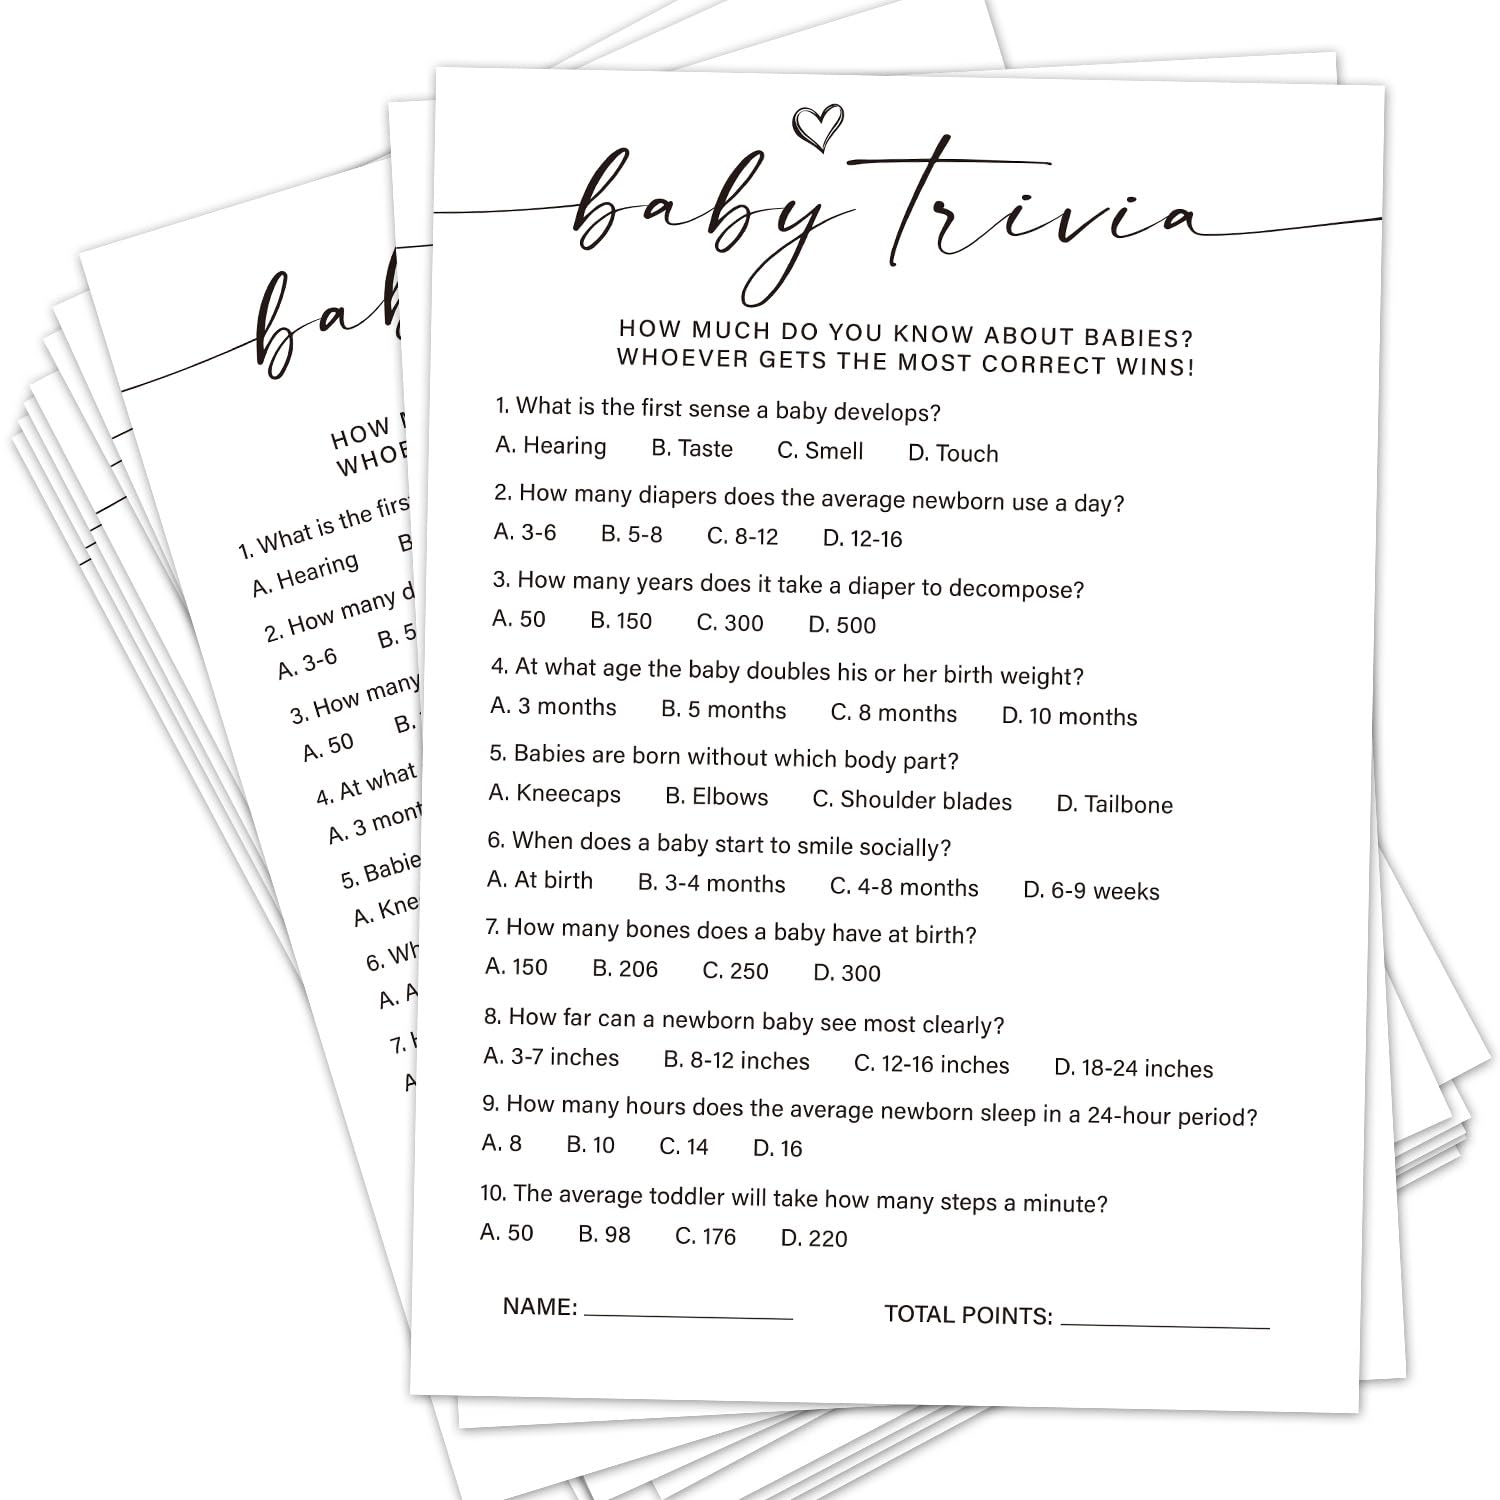 baby trivia
HOW MUCH DO YOU KNOW ABOUT BABIES?
WHOEVER GETS THE MOST CORRECT WINS!
1. What is the first sense a baby develops?
A. Hearing B. Taste C. Smell D. Touch
2. How many diapers does the average newborn use a day?
A. 3-6 B. 5-8 C. 8-12 D. 12-16
3. How many years does it take a diaper to decompose?
A. 50 B. 150 C. 300 D. 500
4. At what age the baby doubles his or her birth weight?
A. 3 months B. 5 months C. 8 months D. 10 months
5. Babies are born without which body part?
A. Kneecaps B. Elbows C. Shoulder blades D. Tailbone
6. When does a baby start to smile socially?
A. At birth B. 3-4 months C. 4-8 months D. 6-9 weeks
7. How many bones does a baby have at birth?
A. 150 B. 206 C. 250 D. 300
8. How far can a newborn baby see most clearly?
A. 3-7 inches B. 8-12 inches C. 12-16 inches D. 18-24 inches
9. How many hours does the average newborn sleep in a 24-hour period?
A. 8 B. 10 C. 14 D. 16
10. The average toddler will take how many steps a minute?
A. 50 B. 98 C. 176 D. 220
NAME: TOTAL POINTS:
HOW
1. What is the
A. Hearing B
2. How many
A. 3-6 B. 5
3. How many
A. 50 B.
4. At what
A. 3
5.
A.
6.
A.
7.
A